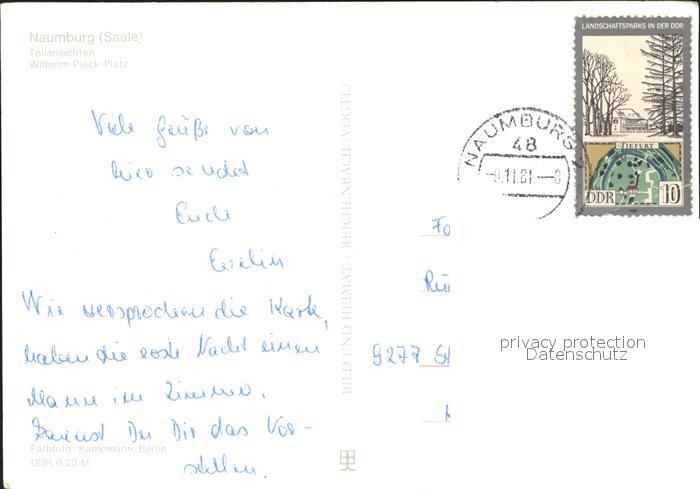 Naumburg (Saale)
Teilansichten
Wilhelm-Pieck-Platz
Viele Grüße von
hier sendet
Euch
Evelin
Wie versprochen die Karte,
haben die erste Nacht einen
Mann im Zimmer.
Kannst Du Dir das Vor-
stellen.
Farbfoto: Kampmann, Berlin
DDR 0,20 M
BILD UND HEIMAT · REICHENBACH (VOGTL)
NAUMBURG
48
11.81.--8
LANDSCHAFTSPARKS IN DER DDR
TIEFURT
DDR 10
9277
privacy protection
Datenschutz